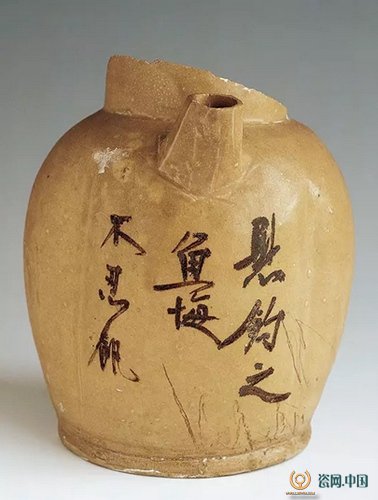 悬钓之
鱼悔
不忍飢
瓷网.中国